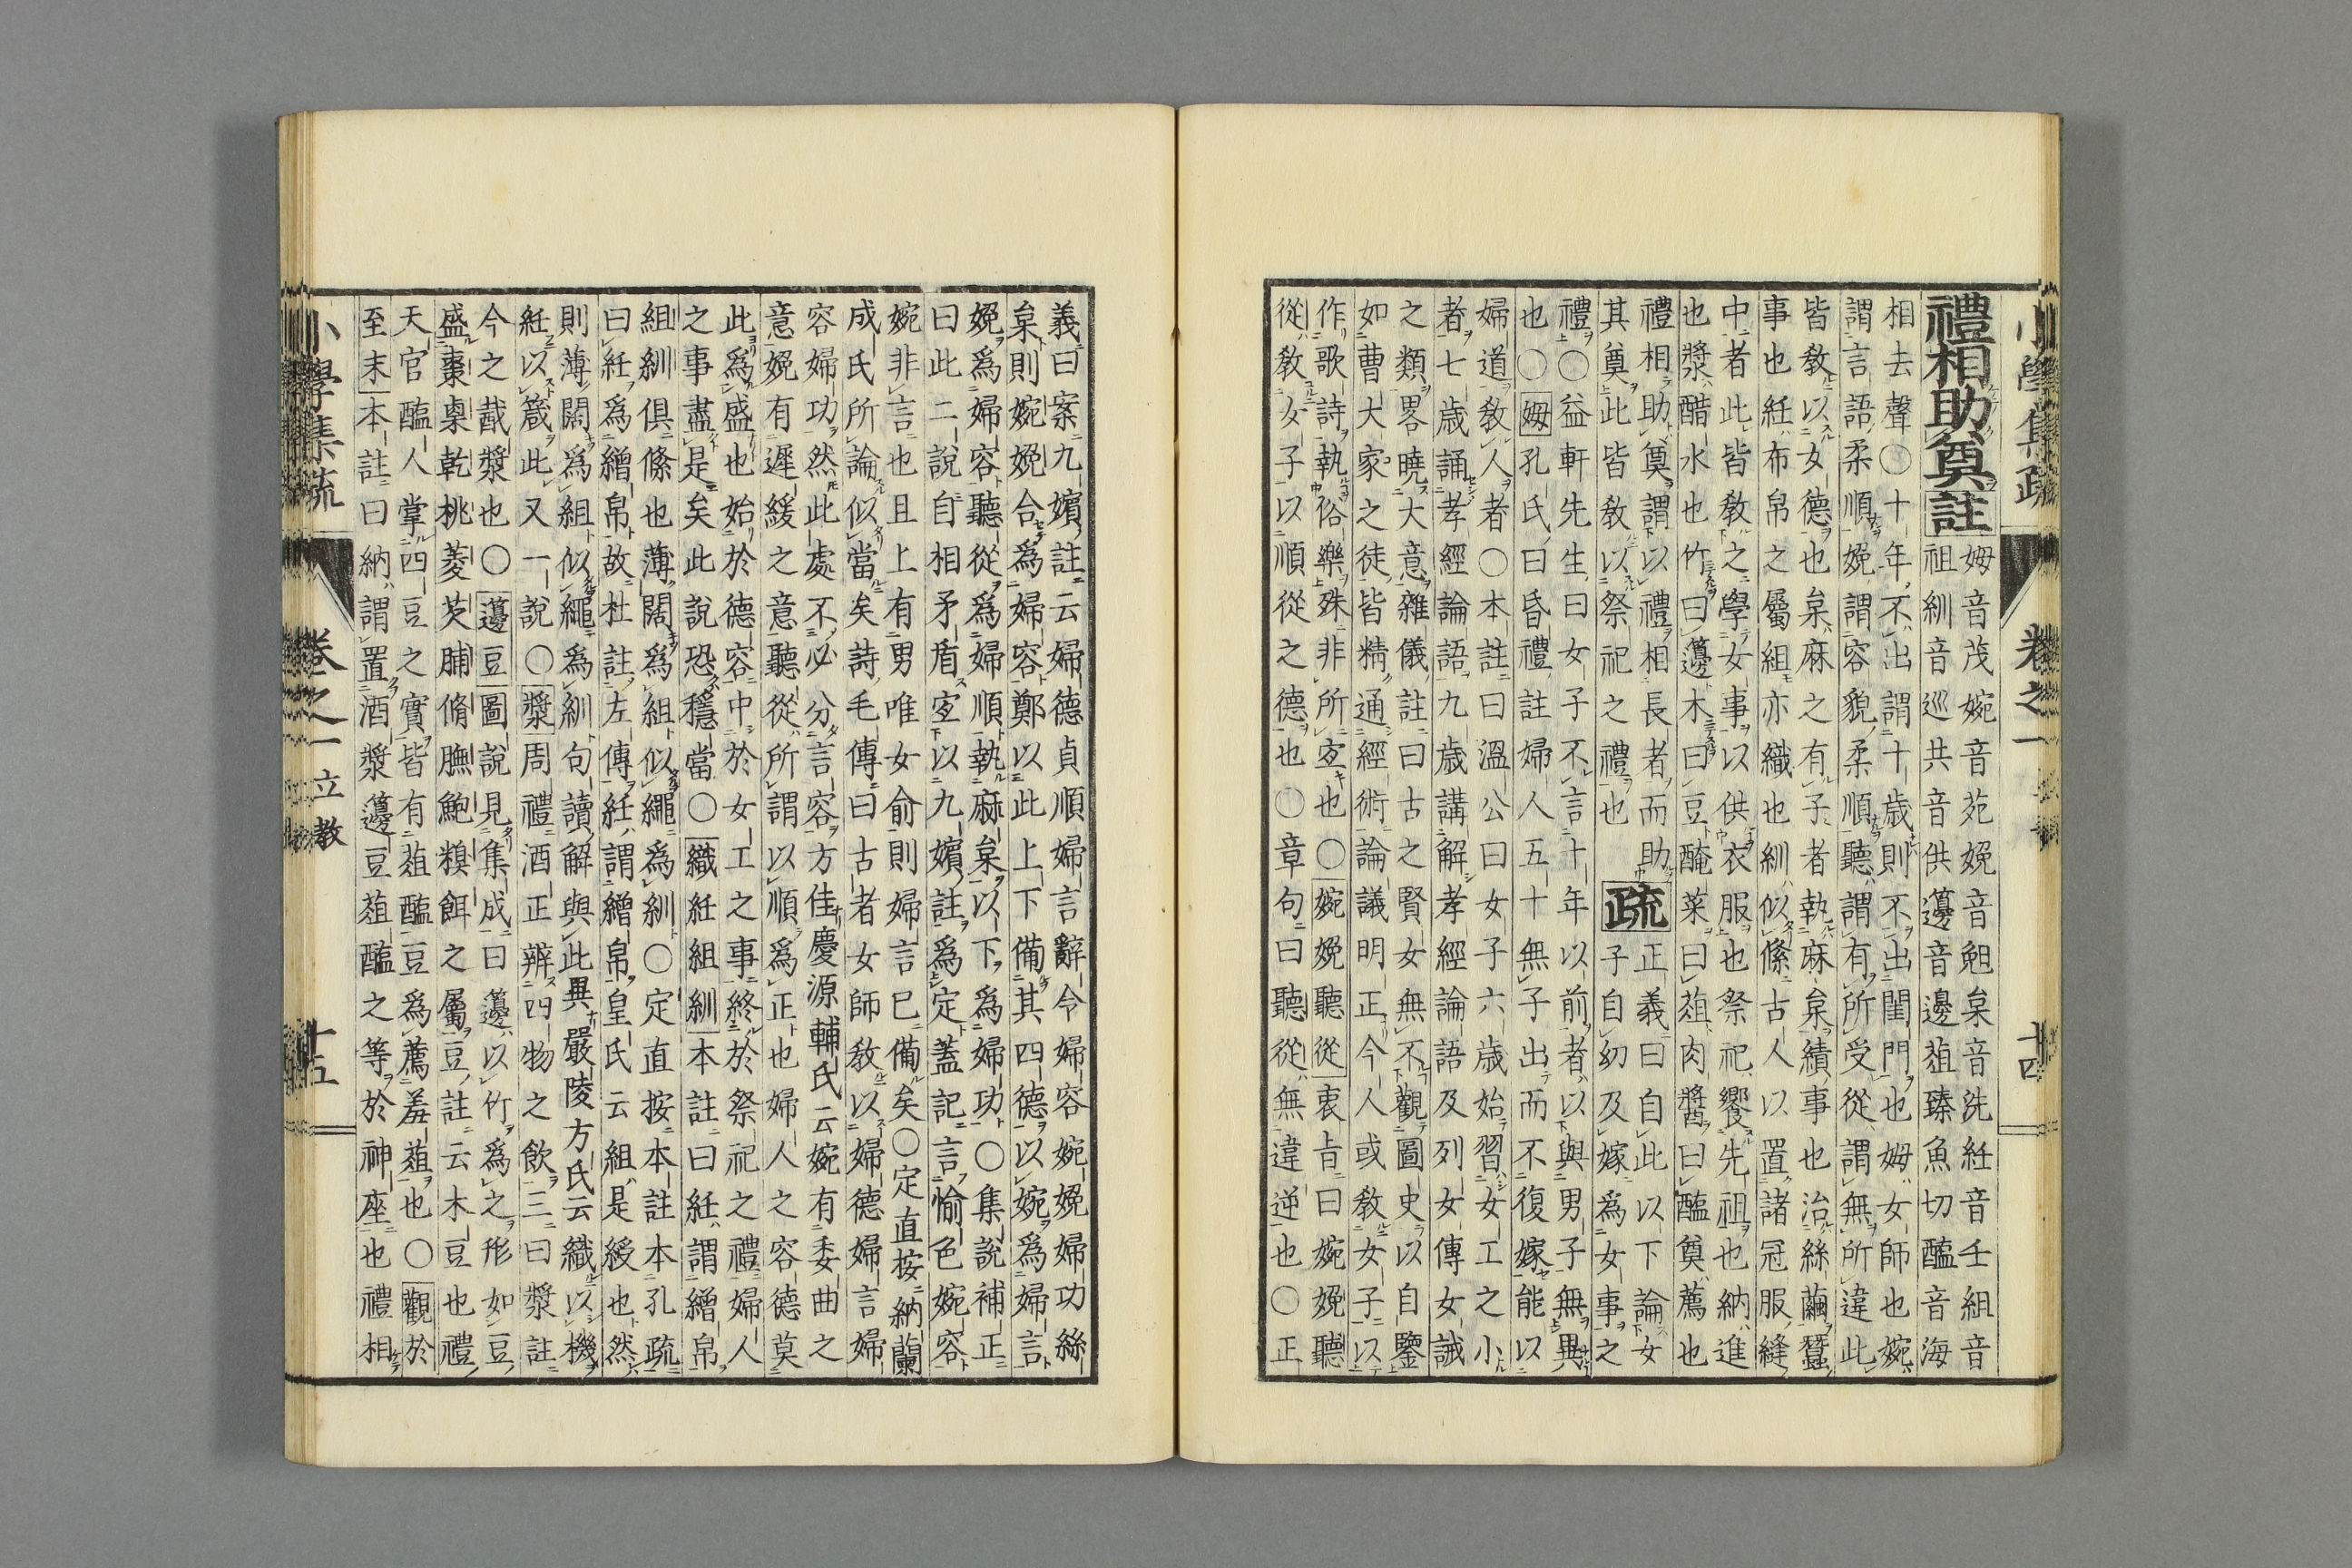 小學集疏 卷之一 十四
禮相助奠 註
姆音茂婉音苑娩音免枲音洗紝音壬組音
祖紃音巡共音供籩音邊葅臻魚切醢音海
相去聲〇十年不出謂十歲則不出閨門也姆女師也婉
謂言語柔順娩謂容貌柔順聽謂有所受從謂無所違此
皆教以女德也枲麻之有子者執麻枲績事也治絲繭蠶
事也紝布帛之屬組亦織也紃似絛古人以置諸冠服縫
中者此皆教之學女事以供衣服也祭祀饗先祖也納進
也漿醋水也竹曰籩木曰豆醃菜曰葅肉醬曰醢奠薦也
禮相助奠謂以禮相長者而助
其奠此皆教以祭祀之禮也
疏
正義曰自此以下論女
子自幼及嫁爲女事之
禮〇益軒先生曰女子不言十年以前者以與男子無異
也〇姆孔氏曰昏禮註婦人五十無子出而不復嫁能以
婦道教人者〇本註曰溫公曰女子六歲始習女工之小
者七歲誦孝經論語九歲講解孝經論語及列女傳女誡
之類畧曉大意雜儀註曰古之賢女無不觀圖史以自鑒
如曹大家之徒皆精通經術論議明正今人或教女子以
作歌詩執俗樂殊非所宜也〇婉娩聽從衷旨曰婉娩聽
從教女子以順從之德也〇章句曰聽從無違逆也〇正
義曰案九嬪註云婦德貞順婦言辭令婦容婉娩婦功絲
枲則婉娩合爲婦容鄭以此上下備其四德以婉爲婦言
娩爲婦容聽從爲婦順執麻枲以下爲婦功〇集說補正
曰此二說自相矛盾宜以九嬪註爲定蓋記言愉色婉容
婉非言也且上有男唯女俞則婦言已備矣〇定直按納蘭
成氏所論似當矣詩毛傳曰古者女師教以婦德婦言婦
容婦功然此處不必分言容方佳慶源輔氏云婉有委曲之
意娩有遲緩之意聽從所謂以順爲正也婦人之容德莫
此爲盛也始於德容中於女工之事終於祭祀之禮婦人
之事盡是矣此說恐穩當〇織紝組紃本註曰紝謂繒帛
組紃俱絛也薄闊爲組似繩爲紃〇定直按本註本孔疏
曰紝爲繒帛故杜註左傳紝謂繒帛皇氏云組是綬也然
則薄闊爲組似繩爲紃句讀解與此異嚴陵方氏云織以機
紝以箴此又一說〇漿周禮酒正辨四物之飲三曰漿註
今之酨漿也〇籩豆圖說見集成曰籩以竹爲之形如豆
盛棗栗乾桃菱芡脯脩膴鮑糗餌之屬豆註云木豆也禮
天官醢人掌四豆之實皆有葅醢豆爲薦羞葅也〇觀於
至末本註曰納謂置酒漿籩豆葅醢之等於神座也禮相
小學集疏 卷之一 立教 十五